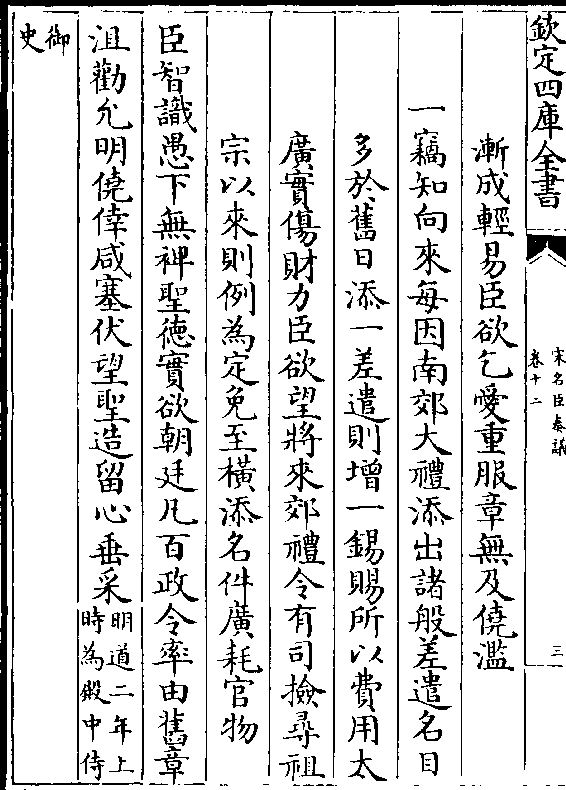 欽定四庫全書
宋名臣奏議
卷十二
三
漸成輕易臣欲乞愛重服章無及僥濫
一竊知向來每因南郊大禮添出諸般差遣名目
多於舊日添一差遣則增一錫賜所以費用太
廣實傷財力臣欲望將來郊禮令有司撿尋祖
宗以來則例為定免至橫添名件廣耗官物
臣智識愚下無裨聖德實欲朝廷凡百政令率由舊章
沮勸允明僥倖咸塞伏望聖造留心垂采
明道二年上
時為殿中侍
御
史